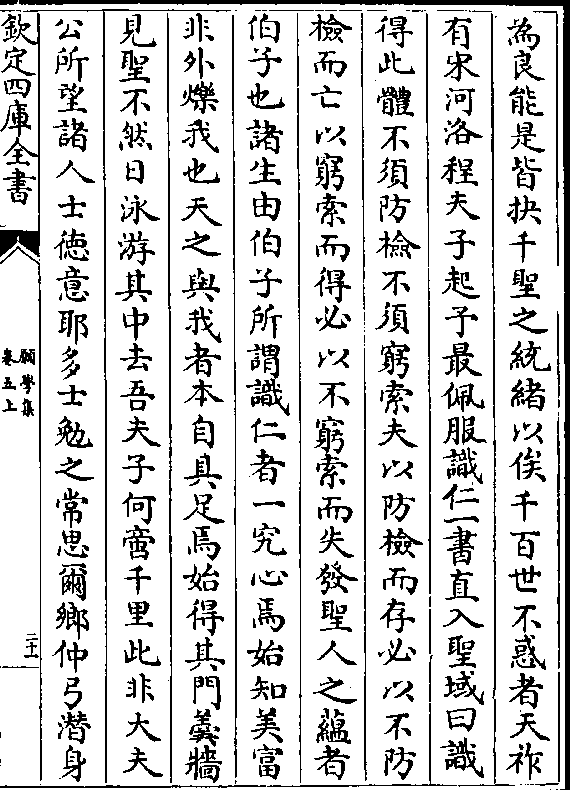 為良能是皆抉千聖之統緒以俟千百世不惑者天祚
有宋河洛程夫子起予最佩服識仁一書直入聖域曰識
得此體不須防檢不須窮索夫以防檢而存必以不防
檢而亡以窮索而得必以不窮索而失發聖人之蘊者
伯子也諸生由伯子所謂識仁者一究心焉始知美富
非外爍我也天之與我者本自具足焉始得其門羹牆
見聖不然日泳游其中去吾夫子何啻千里此非大夫
公所望諸人士徳意耶多士勉之常思爾鄉仲弓潜身
欽定四庫全書
願學集
卷五上
二十一